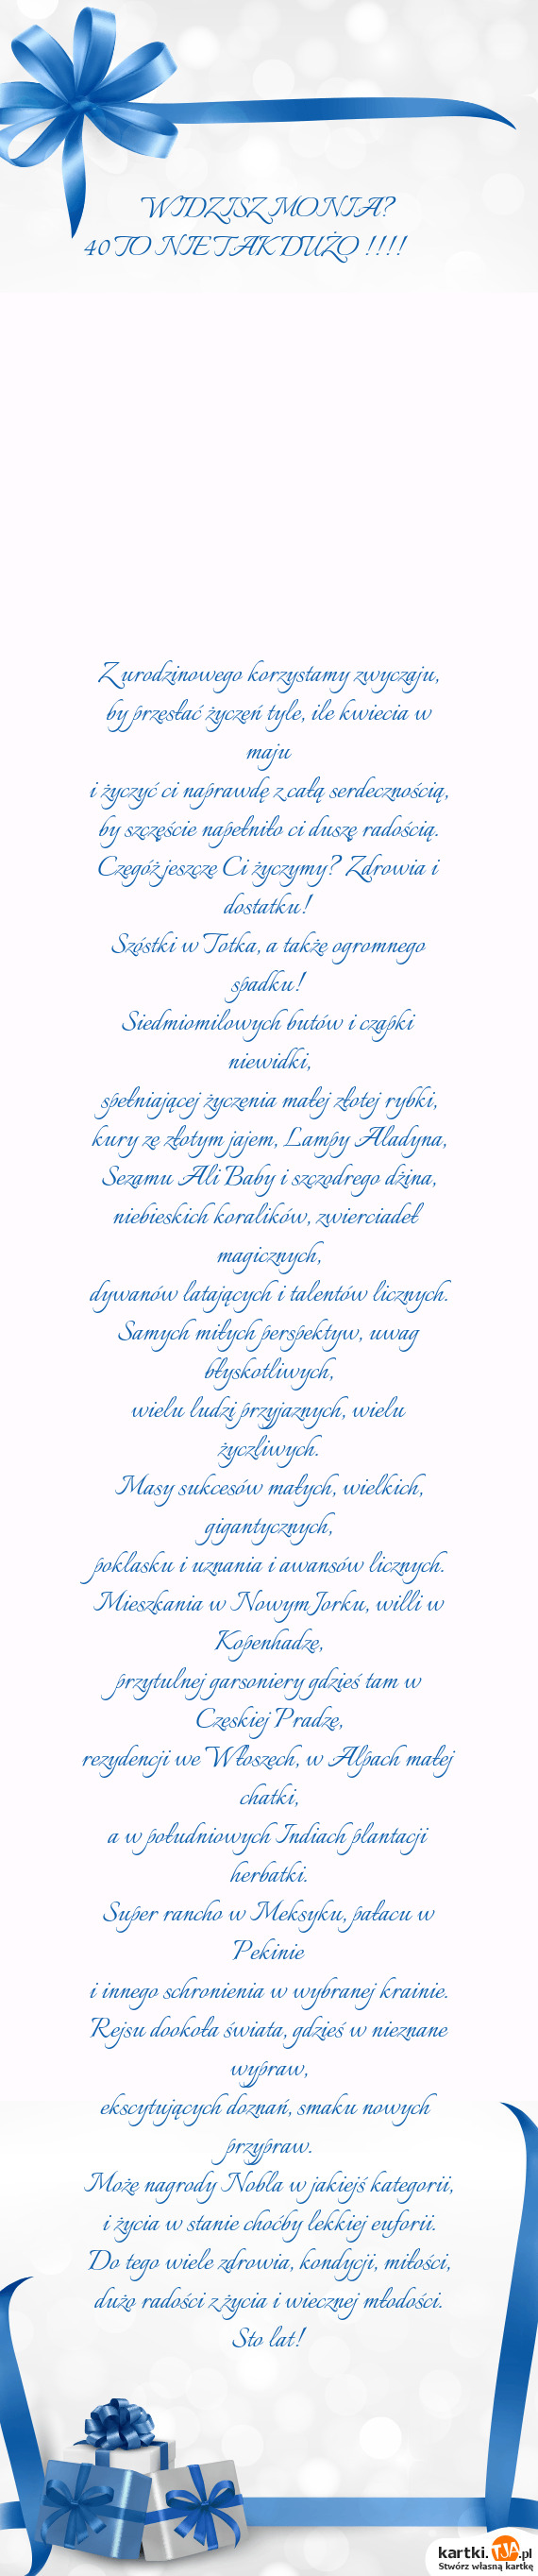 WIDZISZ MONIA?
40 TO NIE TAK DUŻO !!!!
Z urodzinowego korzystamy zwyczaju,
by przesłać życzeń tyle, ile kwiecia w
maju
i życzyć ci naprawdę z całą serdecznością,
by szczęście napełniło ci duszę radością.
Czegóż jeszcze Ci życzymy? Zdrowia i
dostatku!
Szóstki w Totka, a także ogromnego
spadku!
Siedmiomilowych butów i czapki
niewidki,
spełniającej życzenia małej złotej rybki,
kury ze złotym jajem, Lampy Aladyna,
Sezamu Ali Baby i szczodrego dżina,
niebieskich koralików, zwierciadeł
magicznych,
dywanów latających i talentów licznych.
Samych miłych perspektyw, uwag
błyskotliwych,
wielu ludzi przyjaznych, wielu
życzliwych.
Masy sukcesów małych, wielkich,
gigantycznych,
poklasku i uznania i awansów licznych.
Mieszkania w Nowym Jorku, willi w
Kopenhadze,
przytulnej garsoniery gdzieś tam w
Czeskiej Pradze,
rezydencji we Włoszech, w Alpach małej
chatki,
a w południowych Indiach plantacji
herbatki.
Super rancho w Meksyku, pałacu w
Pekinie
i innego schronienia w wybranej krainie.
Rejsu dookoła świata, gdzieś w nieznane
wypraw,
ekscytujących doznań, smaku nowych
przypraw.
Może nagrody Nobla w jakiejś kategorii,
i życia w stanie choćby lekkiej euforii.
Do tego wiele zdrowia, kondycji, miłości,
dużo radości z życia i wiecznej młodości.
Sto lat!
kartki.TJA.pl
Stwórz własną kartkę